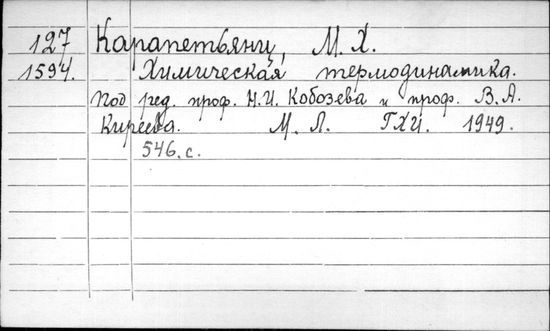 127 Карапетьянц, М. Х.
1594. Химическая термодинамика.
Под ред. проф. Н.И. Кобозева и проф. В.А.
Киреева. М. Л. ГХИ. 1949.
546.с.